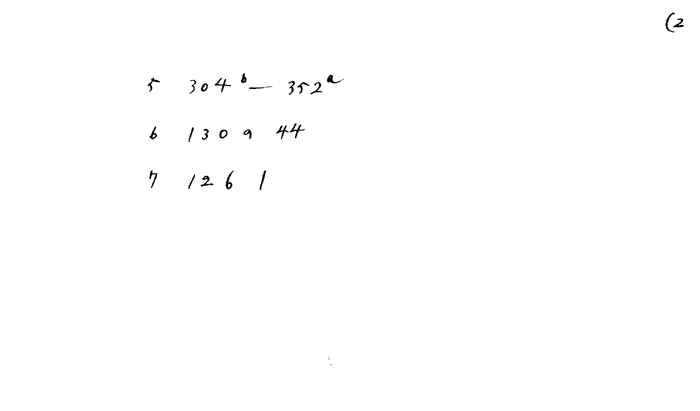 (2
5 304ᵇ — 352ᵃ
6 130 9 44
7 126 1